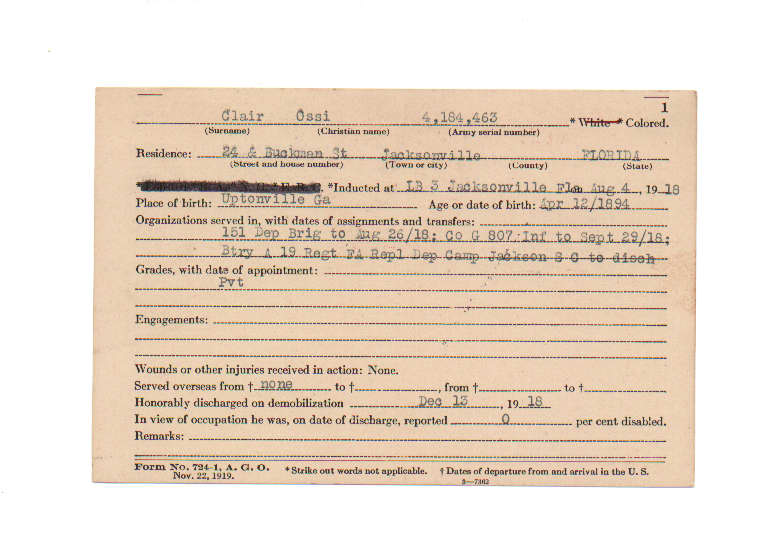 1
Clair Ossi 4,184,463 * White * Colored.
(Surname) (Christian name) (Army serial number)
Residence: 24 & Buckman St Jacksonville FLORIDA
(Street and house number) (Town or city) (County) (State)
*Inducted at LB 3 Jacksonville Fla Aug 4, 19 18
Place of birth: Uptonville Ga Age or date of birth: Apr 12/1894
Organizations served in, with dates of assignments and transfers:
151 Dep Brig to Aug 26/18; Co G 807 Inf to Sept 29/18;
Btry A 19 Regt FA Repl Dep Camp Jackson S C to disch
Grades, with date of appointment:
Pvt
Engagements:
Wounds or other injuries received in action: None.
Served overseas from † none to †, from † to †
Honorably discharged on demobilization Dec 13, 19 18
In view of occupation he was, on date of discharge, reported 0 per cent disabled.
Remarks:
Form No. 724-1, A. G. O. *Strike out words not applicable. † Dates of departure from and arrival in the U. S.
Nov. 22, 1919. 3—7362